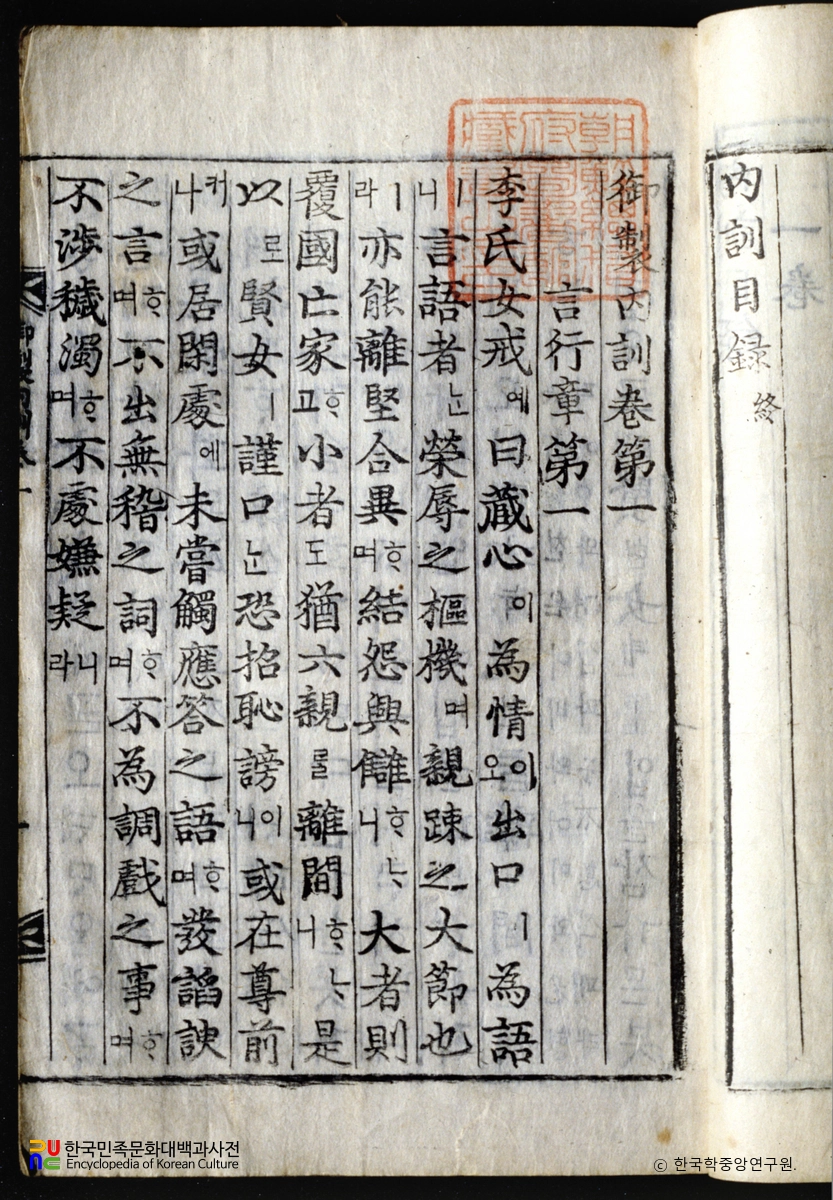 內訓目録 終
御製內訓卷第一
言行章第一
李氏女戒예曰藏心이為情이오出口ㅣ為語
ㅣ니言語者ᄂᆞᆫ榮辱之樞機며親踈之大節也
ㅣ라亦能離堅合異ᄒᆞ며結怨興讎ᄒᆞᄂᆞ니大者則
覆國亡家ᄒᆞ고小者도猶六親ᄅᆞᆯ離間ᄒᆞᄂᆞ니是
以로賢女ㅣ謹口ᄂᆞᆫ恐招恥謗이니或在尊前
커나或居閑處에未嘗觸應答之語ᄒᆞ며發諂諛
之言ᄒᆞ며不出無稽之詞ᄒᆞ며不為調戲之事ᄒᆞ며
不涉穢濁ᄒᆞ며不處嫌疑니라
朝鮮總督府圖書館藏書之印
한국민족문화대백과사전
Encyclopedia of Korean Culture
ⓒ 한국학중앙연구원.